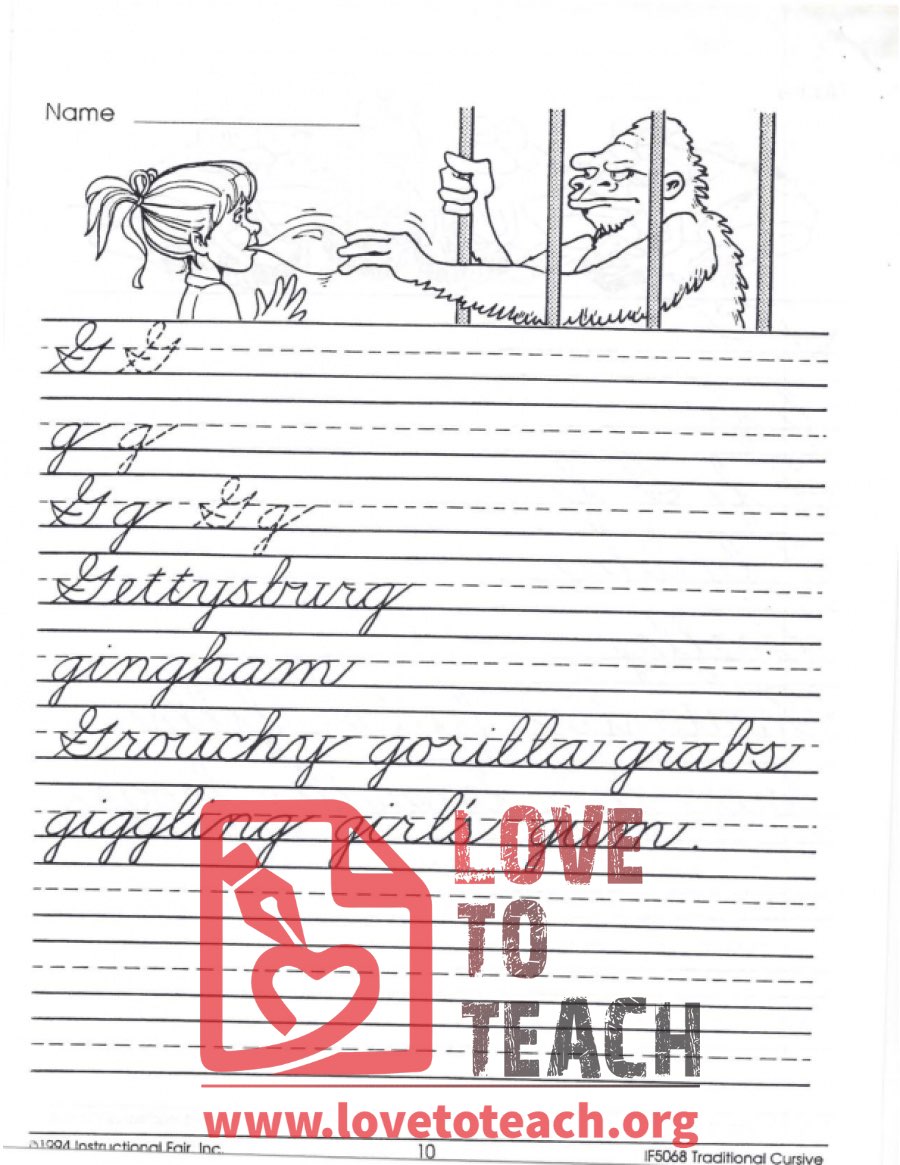 Name
G G
g g
G g G g
Gettysburg
gingham
Grouchy gorilla grabs
giggling girl's gum.
LOVE
TO
TEACH
www.lovetoteach.org
©1994 Instructional Fair, Inc. 10 IF5068 Traditional Cursive